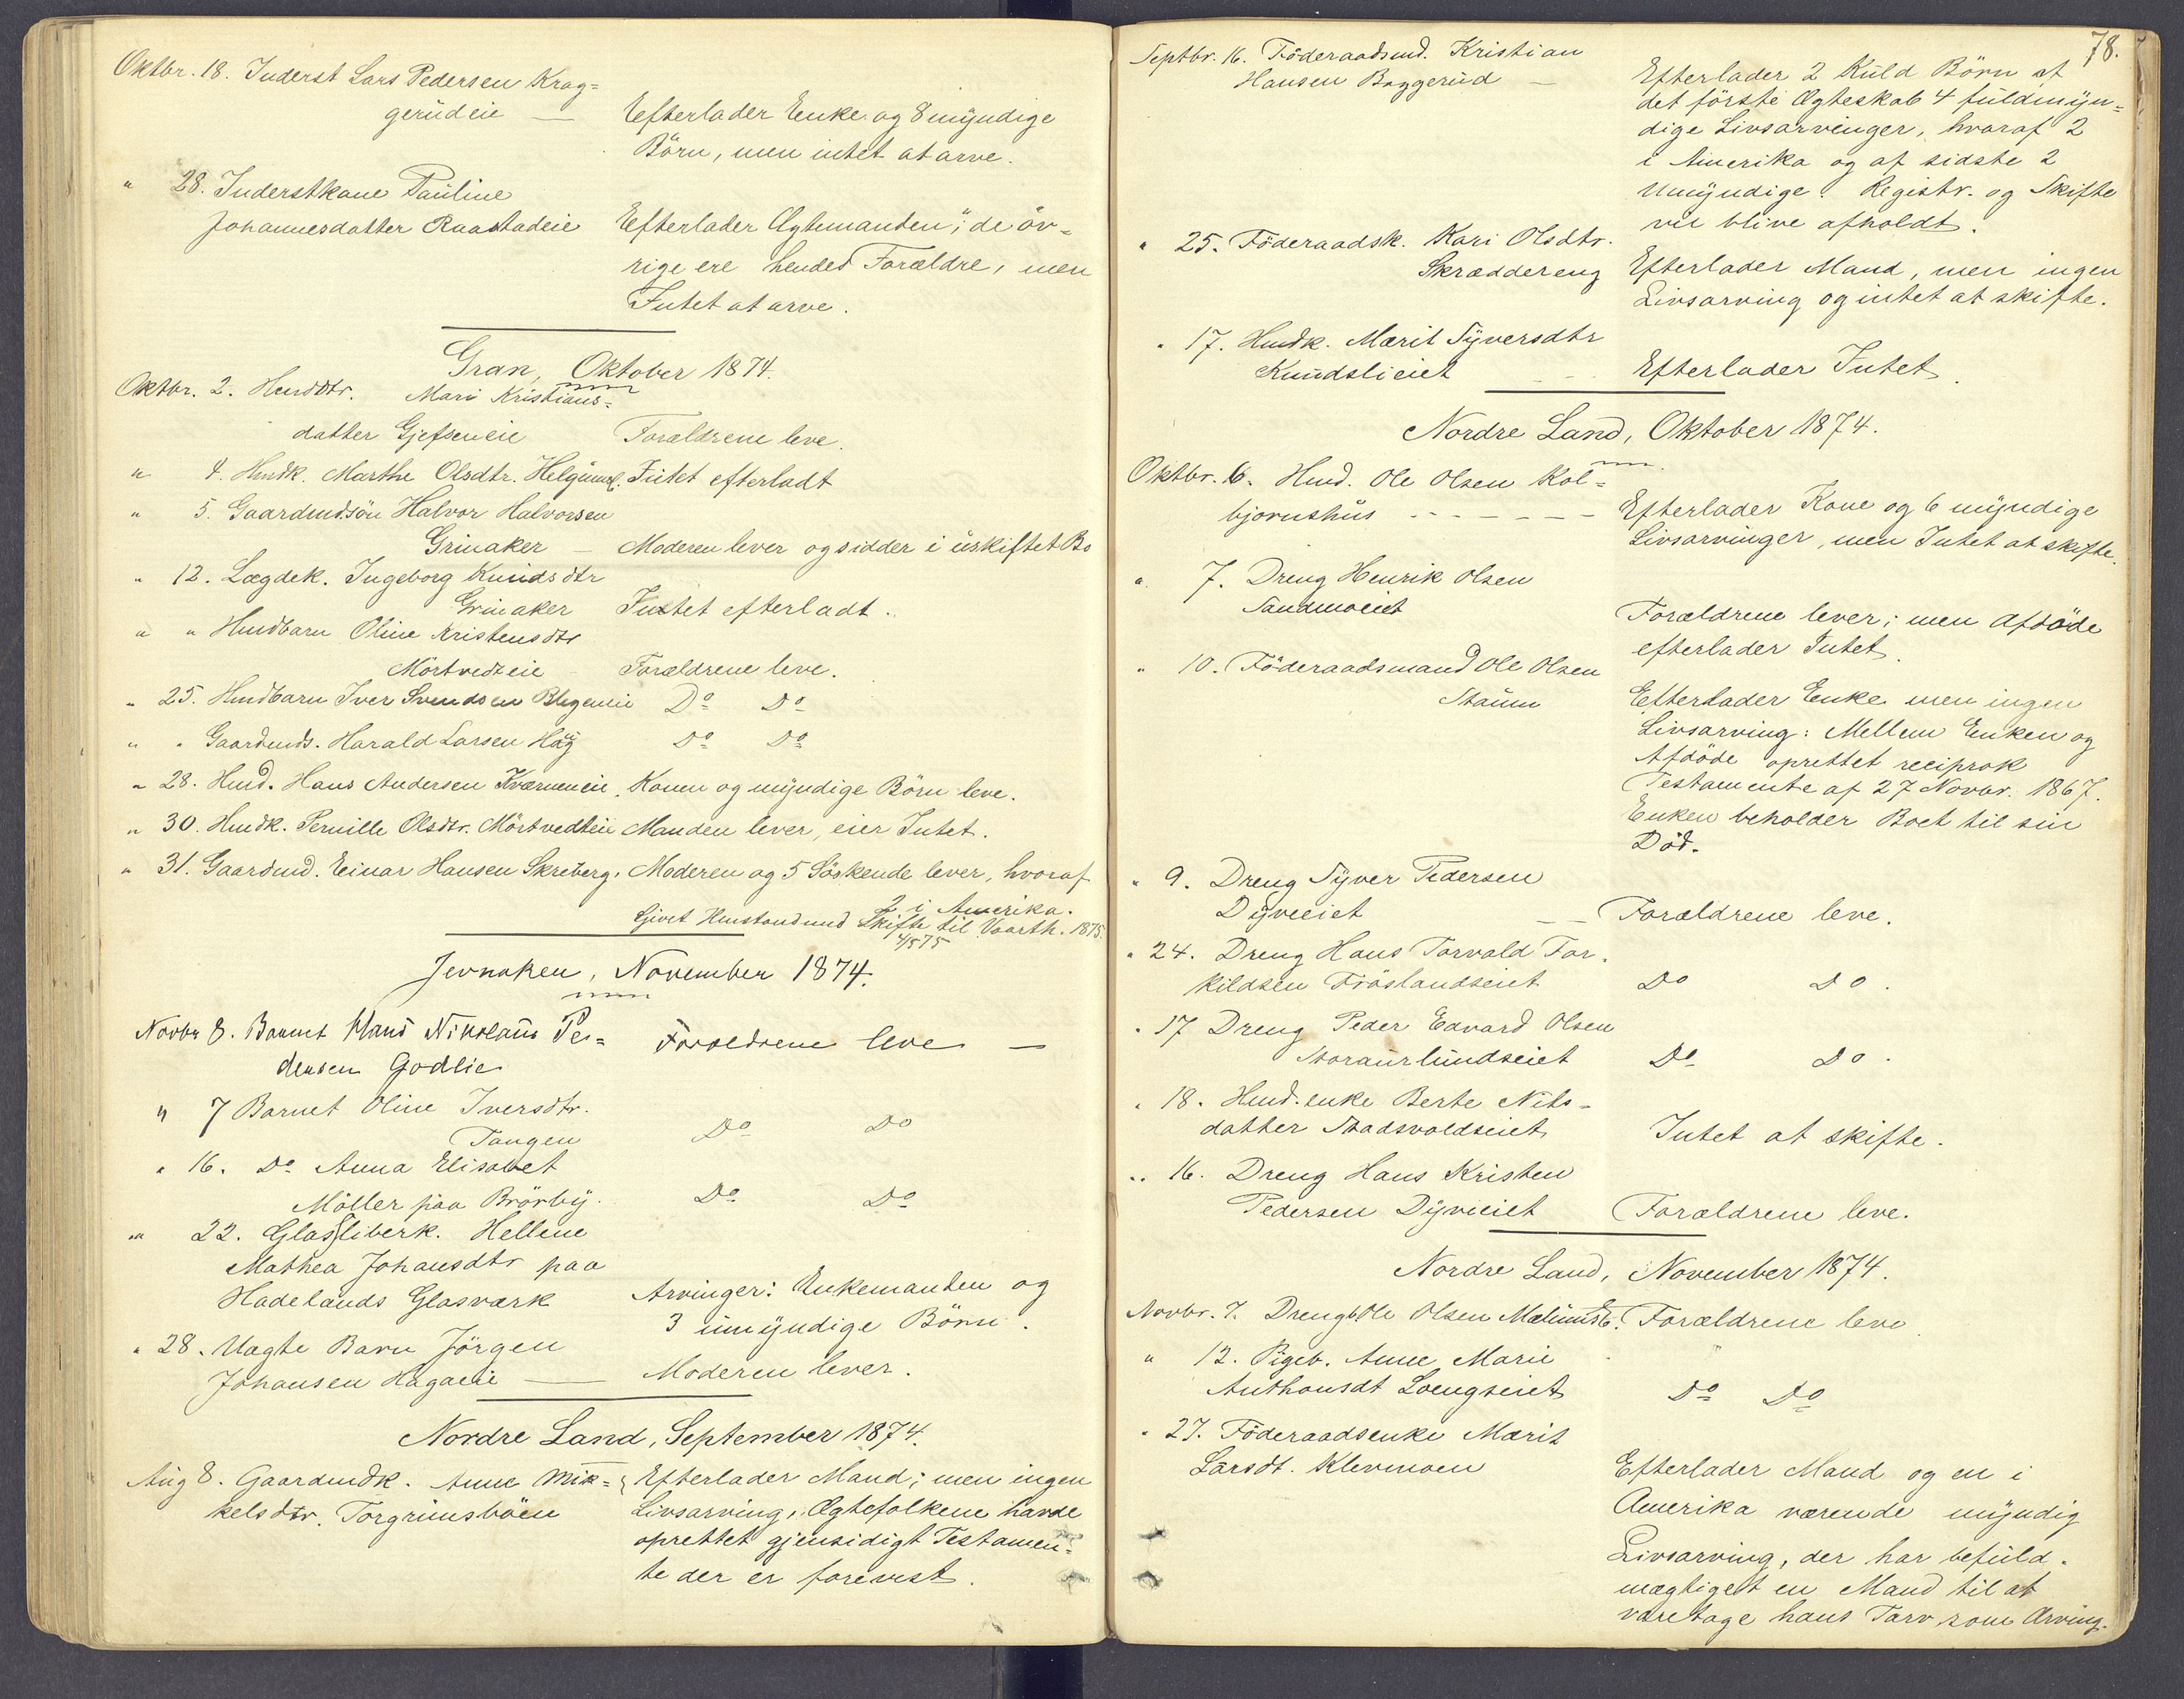 Oktbr. 18. Inderst Lars Pedersen Krag-
gerüdeie — Efterlader Enke og 8 mÿndige
Börn, men intet at arve.
" 28. Inderstkone Pauline
Johannesdatter Raastadeie Efterlader Ægtemanden; de öv-
rige ere hendes Forældre, men
Intet at arve.
Gran, Oktober 1874.
Oktbr. 2. Husdtr. Mari Kristians-
datter Gjefseneie Forældrene leve.
" 4. Husk. Marthe Olsdtr. Intet efterladt
" 5. Gaardmdsön Halvor Halvorsen
Grinaker — Moderen lever og sidder i üskiftet Bo
" 12. Lægdek. Ingeborg Knüdsdtr
Grinaker Intet efterladt.
" " Husdbarn Oline Kristensdtr
Mörtvedteie Forældrene leve.
" 25. Husdbarn Iver Svendsen Do Do
" " Gaardmds. Harald Larsen Do Do
" 28. Husd. Hans Andersen Kværneneie, Konen og mÿndige Börn leve.
" 30. Husdk. Pernille Olsdtr. Mörtvedteie Manden lever, eier Intet.
" 31. Gaardmd. Einar Hansen Skreberg. Moderen og 5 Söskende lever, hvoraf
2 i Amerika.
Givet Henstand med Skifte til Vaarth. 1875.
4/5 75
Jevnaken, November 1874.
Novbr 8. Barnet Hans Nikolaus Pe-
dersen Godlie Forældrene leve —
" 7 Barnet Oline Iversdtr.
Tangen Do Do
" 16. Do Anna Elisabet
Möller paa Brörbÿ. Do Do
" 22. Glassliberk. Hellene
Mathea Johansdtr paa
Hadelands Glasværk Arvinger: Enkemanden og
3 ümÿndige Börn.
" 28. Uægte Barn Jörgen
Johansen Hagaeie — Moderen lever.
Nordre Land, September 1874.
Aug 8. Gaardmdk. Anne Mik- Efterlader Mand; men ingen
kelsdtr. Torgrimsböen Livsarving, Ægtefolkene havde
oprettet gjensidigt Testamen-
te der er forevist.
78.
Septbr. 16. Föderaadsmd. Kristian
Hansen Baggerüd — Efterlader 2 Küld Börn af
det förste Ægteskab 4 füldmÿn-
dige Livsarvinger, hvoraf 2
i Amerika og af sidste 2
Umÿndige. Registr. og Skifte
vil blive afholdt.
" 25. Föderaadsk. Kari Olsdtr.
Skræddereng Efterlader Mand, men ingen
Livsarving og intet at skifte.
" 17. Husdk. Marit Sÿversdtr
Knüdslieiet Efterlader Intet.
Nordre Land, Oktober 1874.
Oktbr. 6. Husd. Ole Olsen Kol-
bjornshüs - - - - - - Efterlader Kone og 6 mÿndige
Livsarvinger, men Intet at skifte.
" 7. Dreng Henrik Olsen
Sandmoeiet Forældrene lever; men Afdöde
efterlader Intet.
" 10. Föderaadsmand Ole Olsen
Staüm Efterlader Enke men ingen
Livsarving: Mellem Enken og
Afdöde oprettet reciprok
Testamente af 27 Novbr. 1867.
Enken beholder Boet til sin
Död.
" 9. Dreng Sÿver Pedersen
Dÿvieiet — — Forældrene leve.
" 24. Dreng Hans Torvald Tor-
kildsen Fröslandseiet Do Do.
" 17 Dreng Peder Edvard Olsen
Do Do.
" 18. Husd.enke Berte Nils-
datter Stadsvoldseiet Intet at skifte.
" 16. Dreng Hans Kristen
Pedersen Dÿvieiet Forældrene leve.
Nordre Land, November 1874.
Novbr. 7. Drengb. Ole Olsen Forældrene leve
" 12. Pigeb. Anne Marie
Anthonsdt Loengseiet Do Do
" 27. Föderaadsenke Marit
Larsdt. Klevmoen Efterlader Mand og en i
Amerika værende mÿndig
Livsarving, der har befüld-
mægtiget en Mand til at
varetage hans Tarv som Arving.